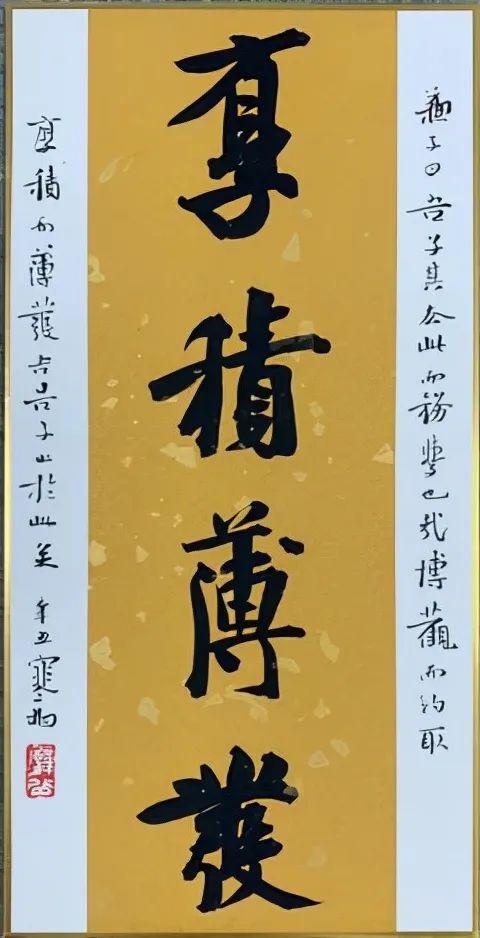 蘇子曰吾子其去此而務學也哉博觀而約取
厚積薄發
厚積而薄發告吾子止於此矣 辛丑